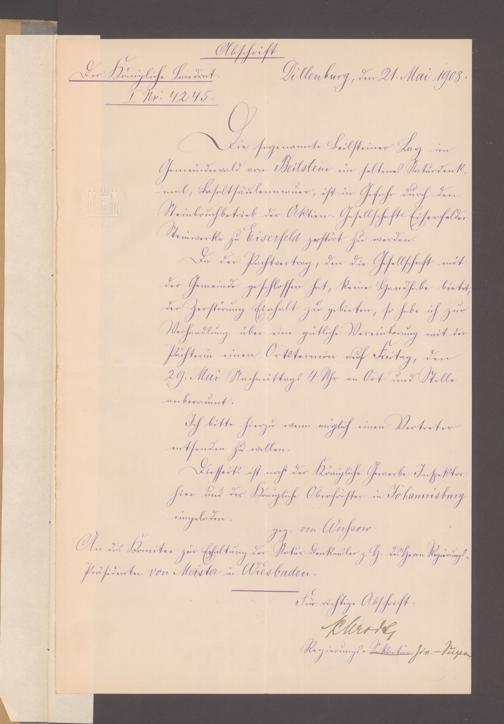 Abschrift
Der Königliche Landrat.
I Nr: 4245.
Dillenburg, den 21. Mai 1908.
Die sogenannte Beilsteiner Lay im
Gemeindewald von Beilstein ein seltenes Naturdenk-
mal, Basaltsäulenmauer, ist in Gefahr durch den
Steinbruchbetrieb der Aktien-Gesellschaft Eiserfelder
Steinwerke zu Eiserfeld zerstört zu werden.
Da der Pachtvertrag, den die Gesellschaft mit
der Gemeinde geschlossen hat, keine Handhabe bietet,
der Zerstörung Einhalt zu gebieten, so habe ich zur
Verhandlung über eine gütliche Vereinbarung mit der
Pächterin einen Ortstermin auf Freitag, den
29. Mai Nachmittags 4 Uhr an Ort und Stelle
anberaumt.
Ich bitte hierzu wenn möglich einen Vertreter
entsenden zu wollen.
Diesseits ist noch der Königliche Gewerbe-Inspektor
hier und der Königliche Oberförster in Johannisburg
eingeladen.
gez. von
An das Komitee zur Erhaltung der Naturdenkmäler z. H. des Herrn Regierungs-
Präsidenten von Meister in Wiesbaden.
Für richtige Abschrift.
Regierungs-